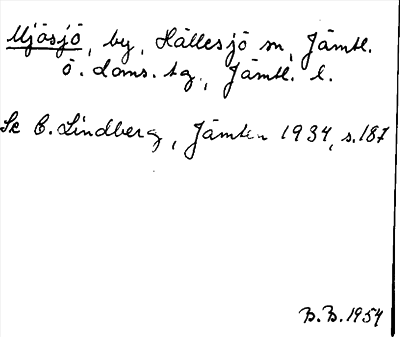 Mjösjö, by, Hällesjö sn, Jämtl.
ö. doms. tg., Jämtl. l.
Se C. Lindberg, Jämten 1934, s. 187
B.B. 1954